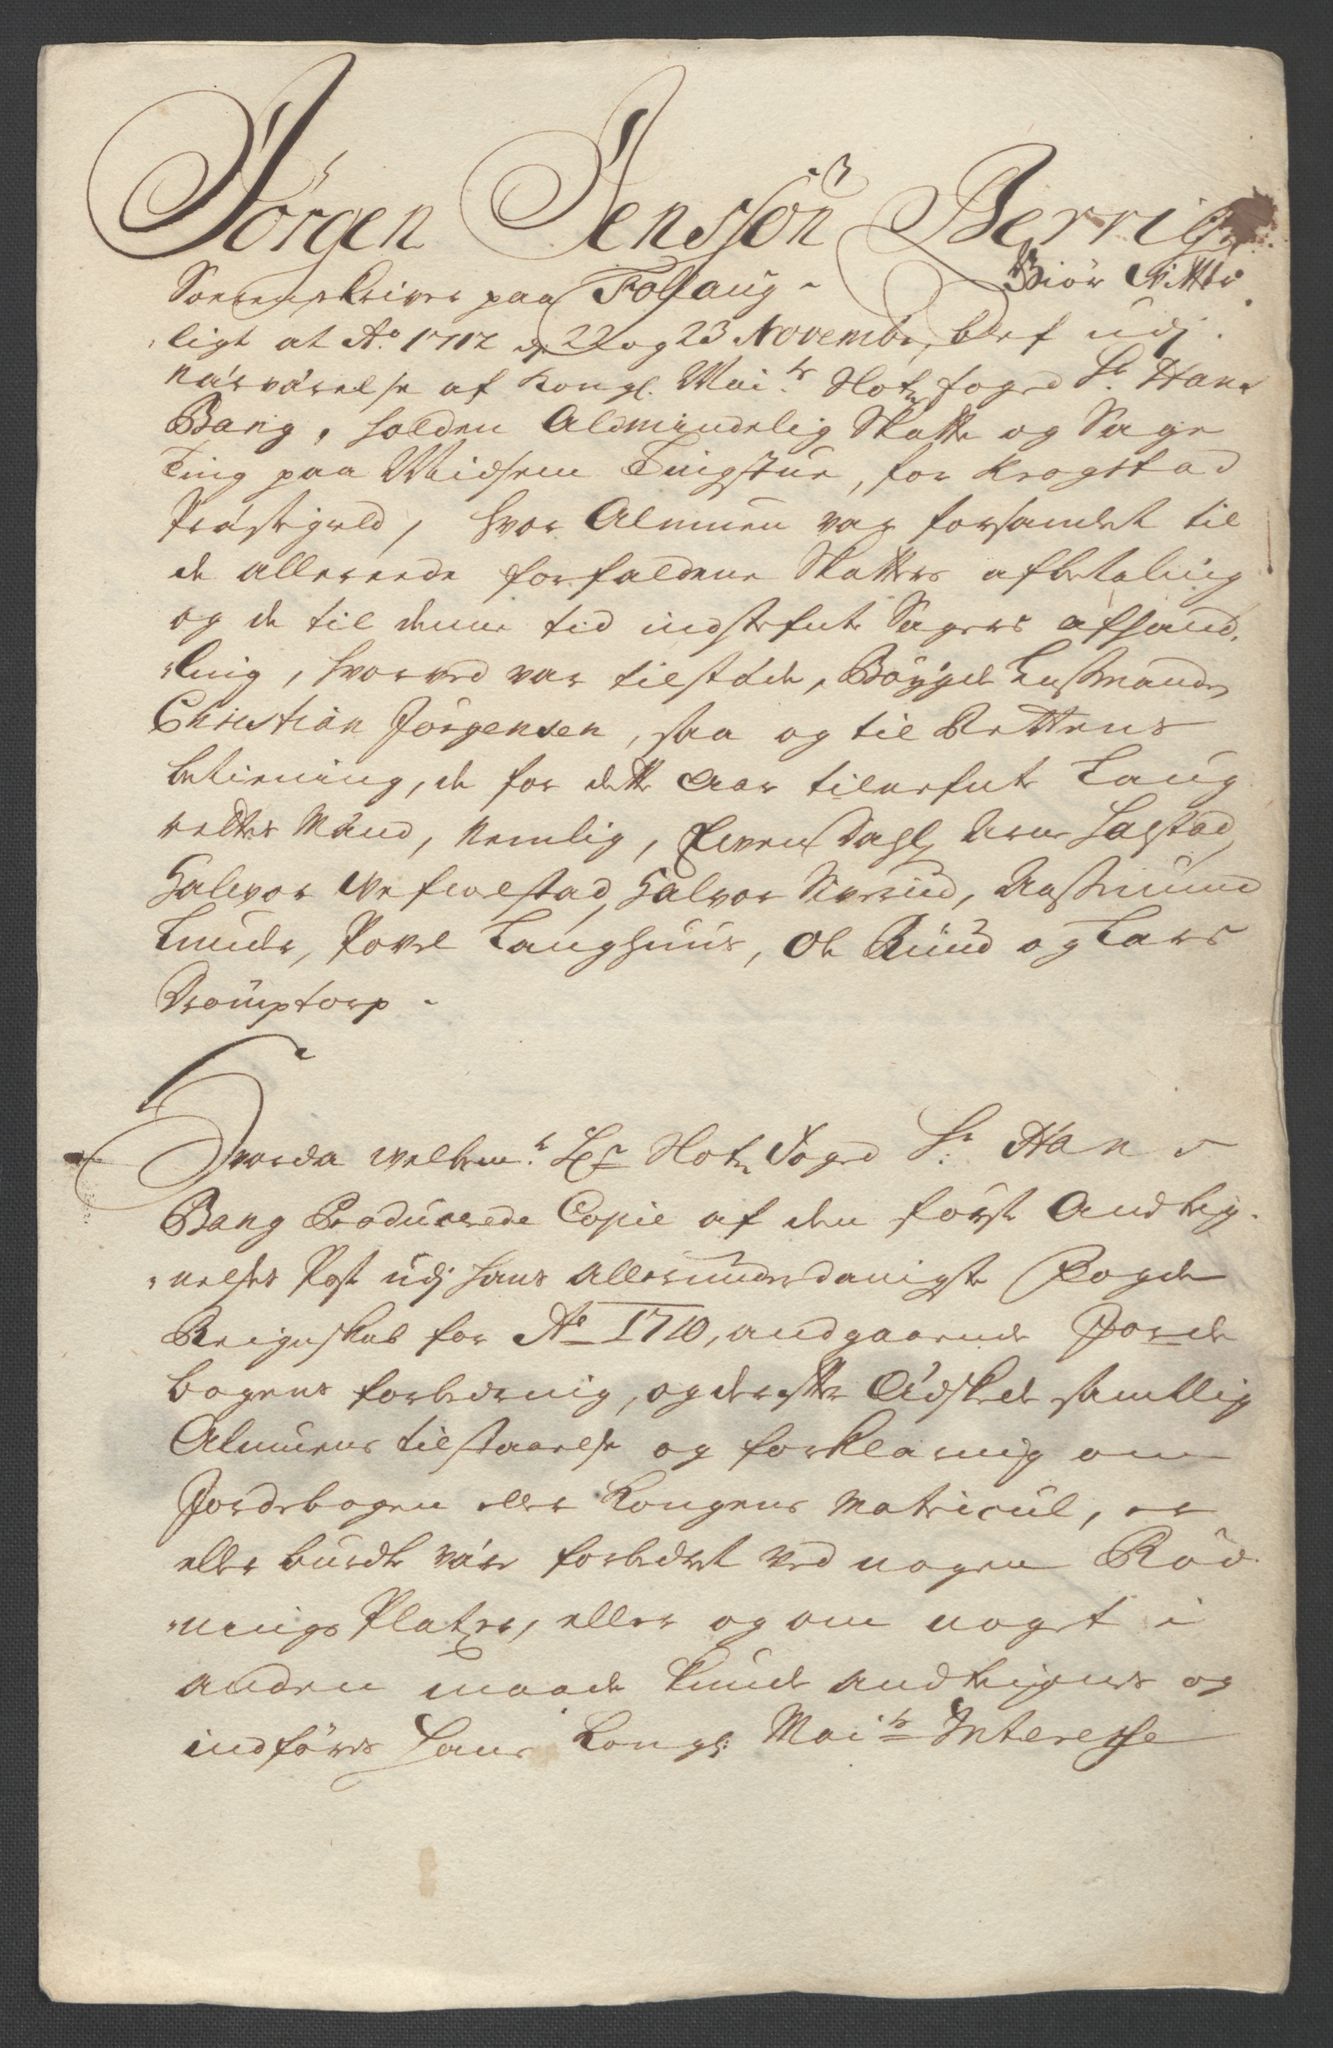 Jörgen Jenssön Berrig
Sorrenskriver paa Folloug Giör Vitter
ligt at Ao. 1712 d 22 og 23 Novembr, blef udj
närwärelse af Kongl. Mai.ts Foged Sr. Hans
Bang, holden Aldmindelig Skatte og Sage
Ting paa Midsem Tingstue, for Krogstad
Prästegield, hvor Almuen var forsamlet til
de allereede forfaldene Skatters afbetaling
og de til denne tid indstefnte Sagers afhand-
ling, hvorved var tilstæde, Böygde Lensmanden
Christian Jörgensen, saa og til Rettens
betiening, de for dette Aar tilnefnte Laug
rettes Mænd, Nemlig, Ewen Dahl, Arne
Halvor, Halvor Sivrud, Aassmund
Lunde, Povel Langhuus, Ole Ruud og Lars
Drömptorp.
Hvorda welbem.te Hr. Fogod Sr. Hans
Bang Producerede Copie af den förste Andteg-
nelses Post udj hans allerunderdanigste Fogde
Reignskab for Ao 1710, andgaaende Jorde
bogens forbedring, og derefter Ædskede samtlig
Almuens tilstaaelse og forklaring om
Jordebogen eller Kongens Matricul, er
eller burde väre forbedret ved nogen Röd-
nings Platzer, eller og om noget i
anden maade kunde andtegnes og
indföres Hans Kongl: Mai.ts Interesse